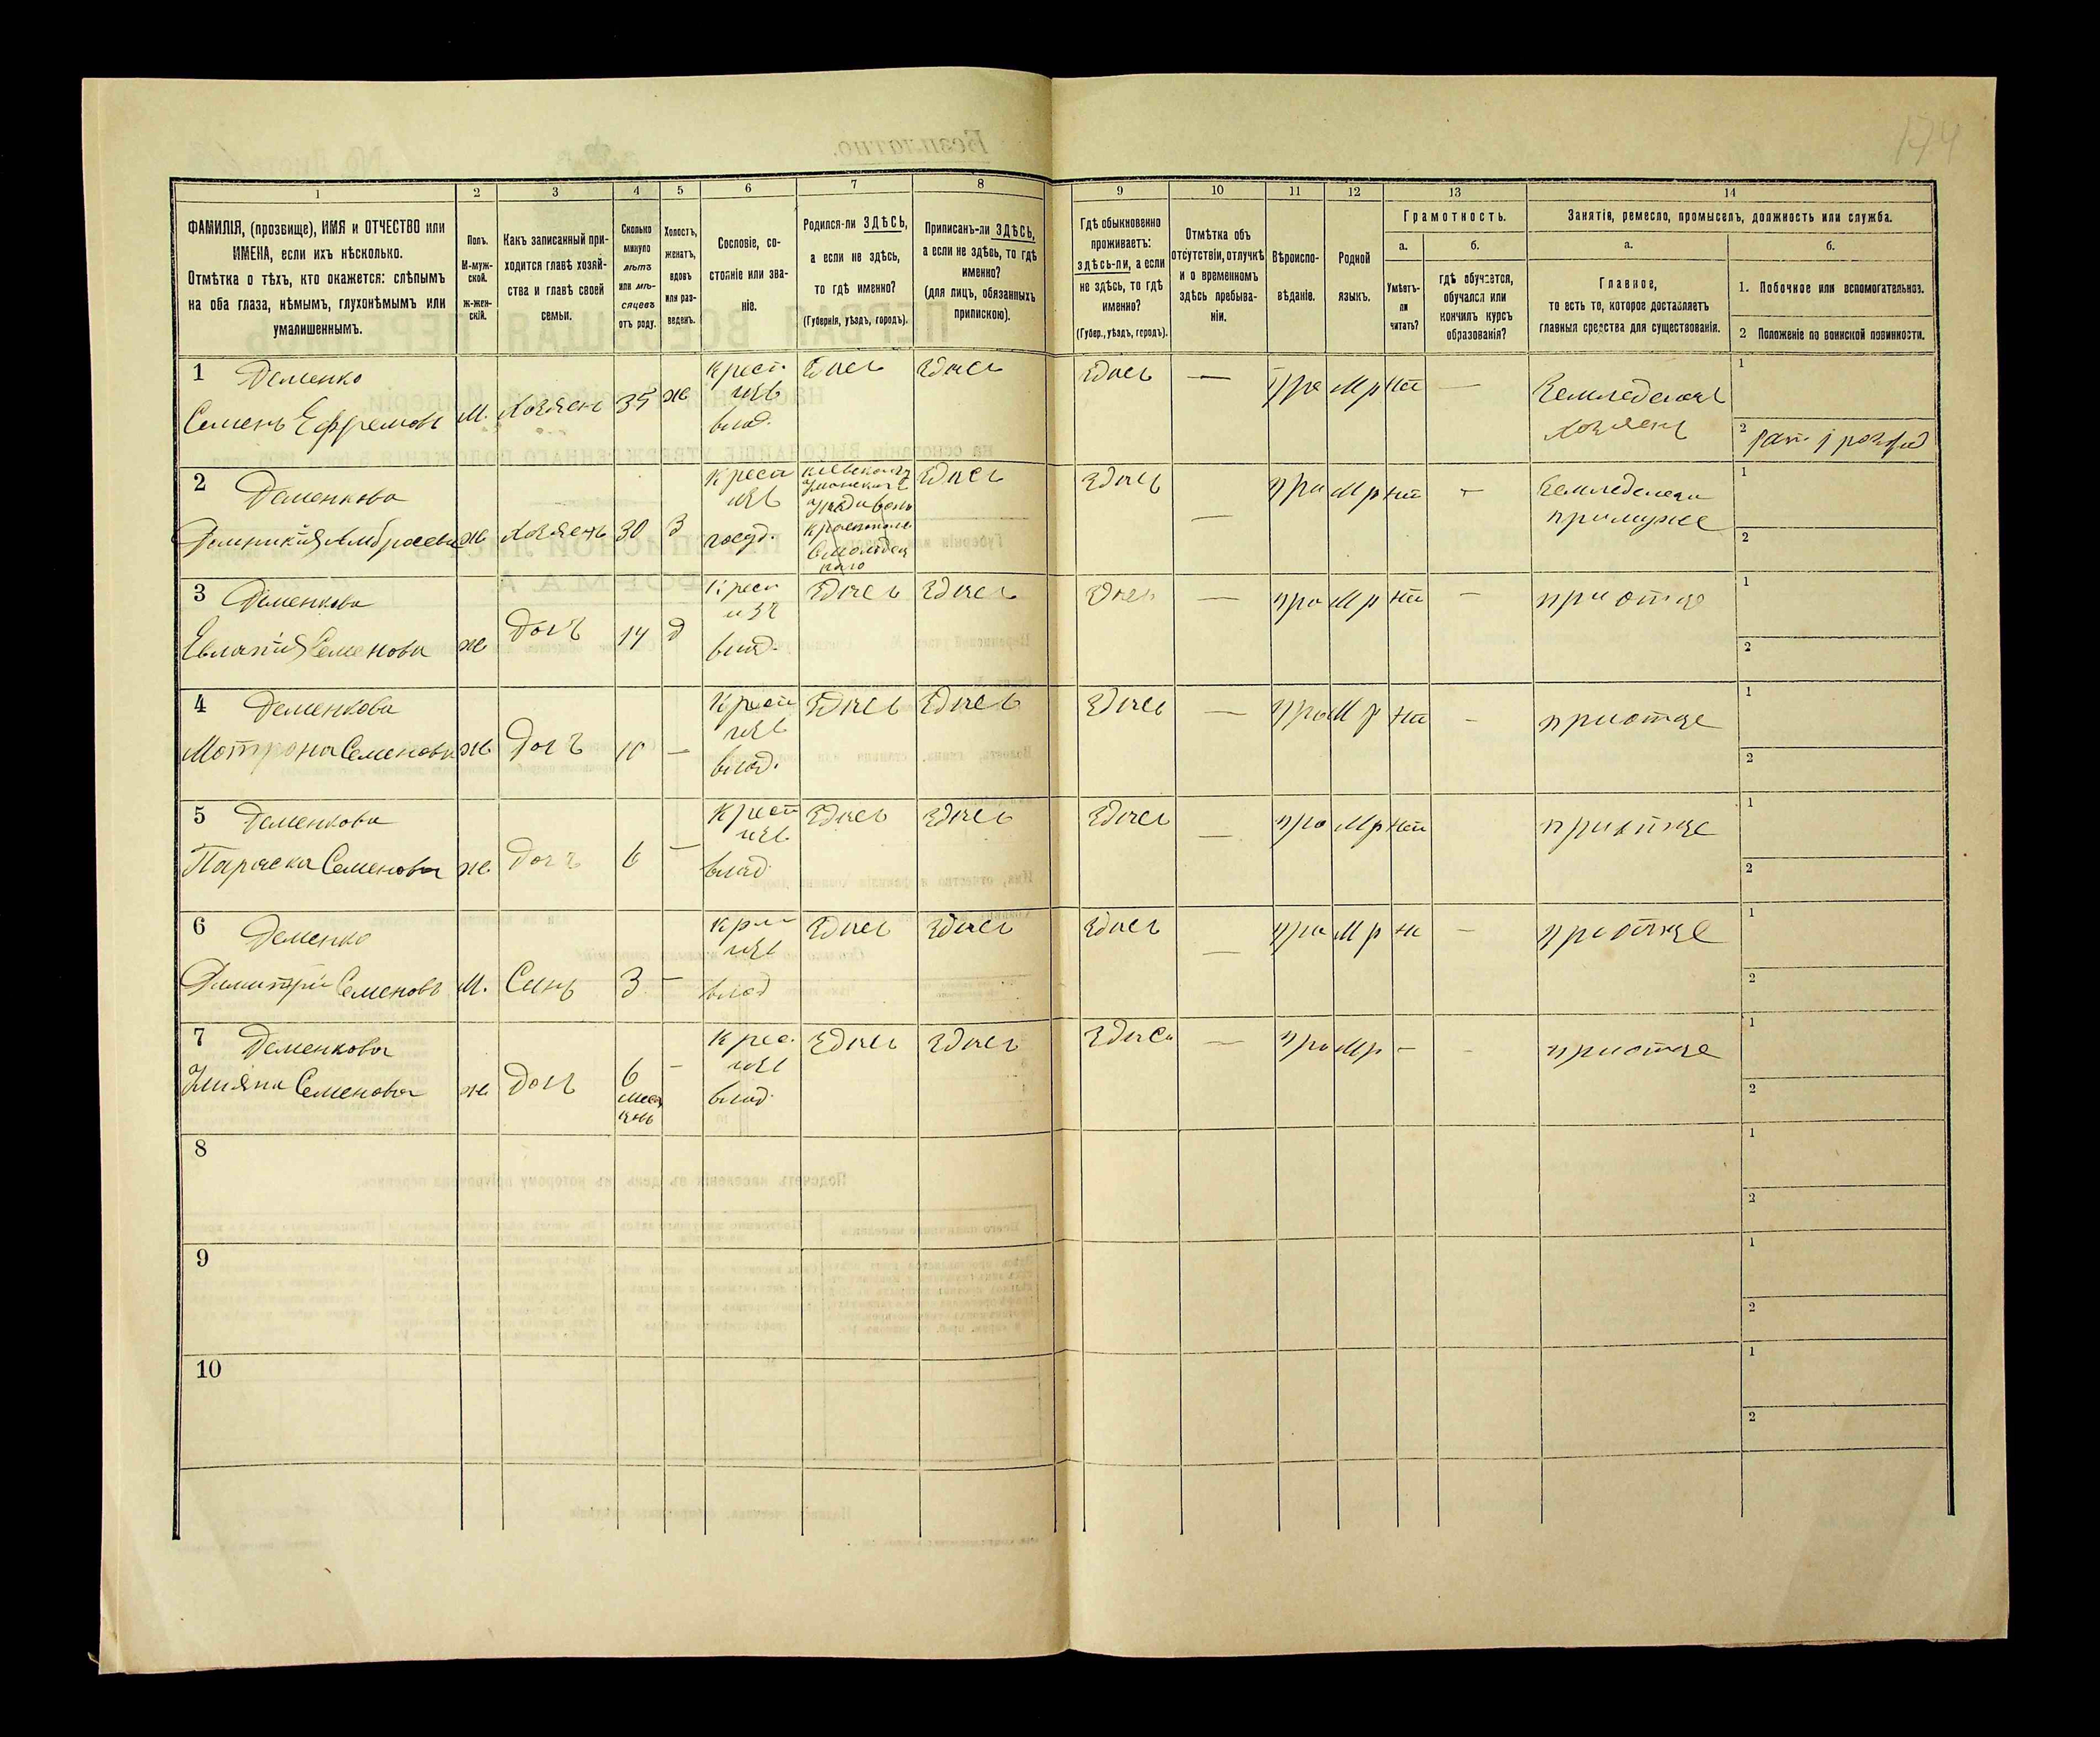 174
1 2 3 4 5 6 7 8 9 10 11 12 13 14
ФАМИЛІЯ, (прозвище), ИМЯ и ОТЧЕСТВО или
ИМЕНА, если ихъ нѣсколько.
Отмѣтка о тѣхъ, кто окажется: слѣпымъ
на оба глаза, нѣмымъ, глухонѣмымъ или
умалишеннымъ.
Полъ.
М-муж-
ской.
ж-жен-
скій.
Какъ записанный при-
ходится главѣ хозяй-
ства и главѣ своей
семьи.
Сколько
минуло
лѣтъ
или мѣ-
сяцевъ
отъ роду.
Холостъ,
женатъ,
вдовъ
или раз-
веденъ.
Сословіе, со-
стояніе или зва-
ніе.
Родился-ли ЗДѢСЬ,
а если не здѣсь,
то гдѣ именно?
(Губернія, уѣздъ, городъ).
Приписанъ-ли ЗДѢСЬ,
а если не здѣсь, то гдѣ
именно?
(для лицъ, обязанныхъ
припискою).
Гдѣ обыкновенно
проживаетъ:
здѣсь-ли, а если
не здѣсь, то гдѣ
именно?
(Губер., уѣздъ, городъ).
Отмѣтка объ
отсутствіи, отлучкѣ
и о временномъ
здѣсь пребыва-
ніи.
Вѣроиспо-
вѣданіе.
Родной
языкъ.
Грамотность.
а.
Умѣетъ-
ли
читать?
б.
гдѣ обучается,
обучался или
кончилъ курсъ
образованія?
Занятія, ремесло, промыселъ, должность или служба.
а.
Главное,
то есть то, которое доставляетъ
главныя средства для существованія.
б.
1. Побочное или вспомогательное.
2 Положеніе по воинской повинности.
1 Деменко
Семенъ Ефремовъ
М. Хозяенъ 35 ж
Крест.
изъ
влад.
Здись Здись Здись — Пра Мр нт —
Земледелецъ
хозяенъ
1
2
2 Деменкова
ж 30 З
Крест
изъ
госуд.
Здись Здись — пра Мр нт —
примуже
1
2
3 Деменкова
Евлапия Семенова
ж Дочъ 14 д
Крест
изъ
влад.
Здись Здись Здись — пра Мр нт — при отце
1
2
4 Деменкова
Мотрона Семенова
ж Дочъ —
Крест
изъ
влад.
Здись Здись Здись — пра М р нт — приотце
1
2
5 Деменкова
Параска Семенова
ж Дочъ 6 —
Крест
изъ
влад
Здись Здись Здись — пра Мр нт приотце
1
2
6 Деменко
Димитрій Семеновъ
М. Синъ 3 —
изъ
влад
Здись Здись Здись — пра М р — приотце
1
2
7 Деменкова
Улияна Семенова
ж Дочъ 6 —
Крес.
изъ
влад.
Здись Здись Здись — пра Мр — - приотце
1
2
8
1
2
9
1
2
10
1
2